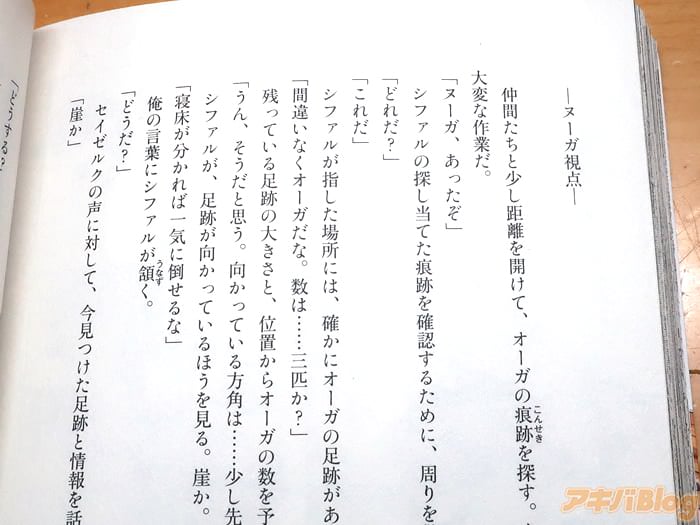 ―ヌーガ視点―
仲間たちと少し距離を開けて、オーガの痕跡を探す。
こんせき
大変な作業だ。
「ヌーガ、あったぞ」
シファルの探し当てた痕跡を確認するために、周りを
「どれだ?」
「これだ」
シファルが指した場所には、確かにオーガの足跡があ
「間違いなくオーガだな。数は……三匹か?」
残っている足跡の大きさと、位置からオーガの数を予
「うん、そうだと思う。向かっている方角は……少し先
シファルが、足跡が向かっているほうを見る。崖か。
「寝床が分かれば一気に倒せるな」
俺の言葉にシファルが頷く。
うなず
「どうだ?」
セイゼルクの声に対して、今見つけた足跡と情報を話
「崖か」
「どうする?
アキバBlog